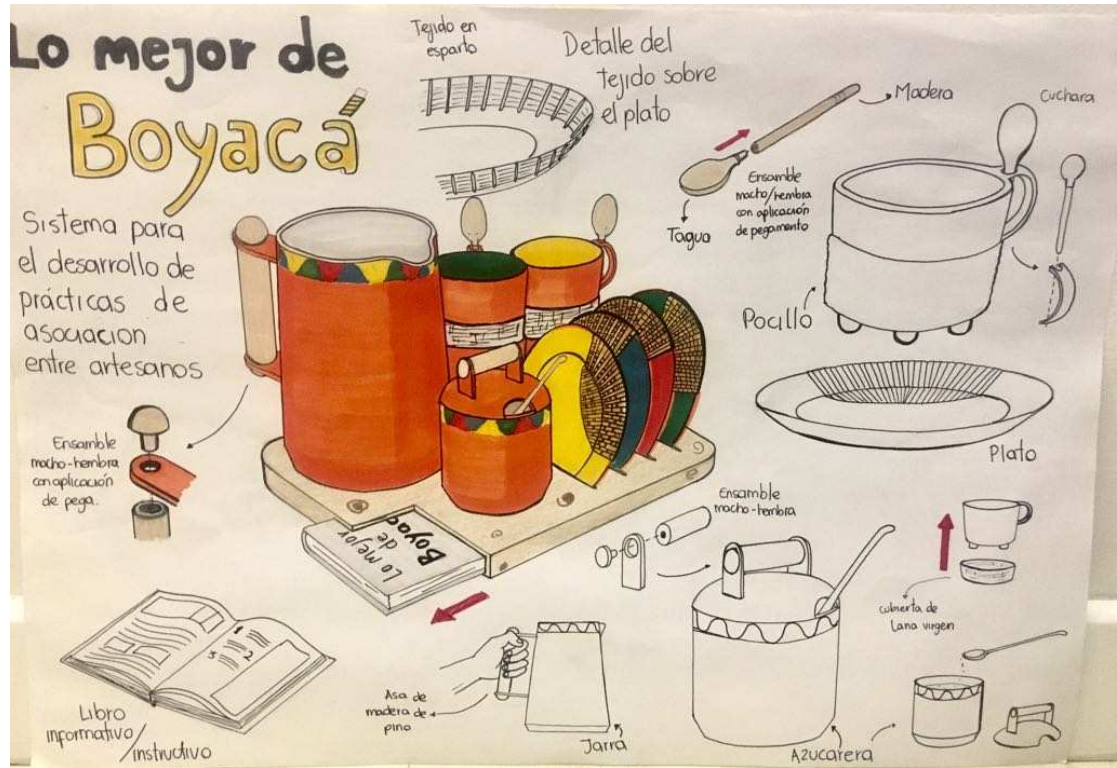 Lo mejor de
Boyacá
Sistema para
el desarrollo de
prácticas de
asociacion
entre artesanos
Tejido en
esparto
Detalle del
tejido sobre
el plato
Madera
Ensamble
macho/hembra
con aplicación
de pegamento
Tagua
Cuchara
Pocillo
Plato
Ensamble
macho-hembra
con aplicación
de pega.
Lo mejor
de
Boyac
Ensamble
macho-hembra
cubierta de
Lana virgen
Libro
informativo/
/instructivo
Asa de
madera de
pino
Jarra
Azucarera
1
2
3